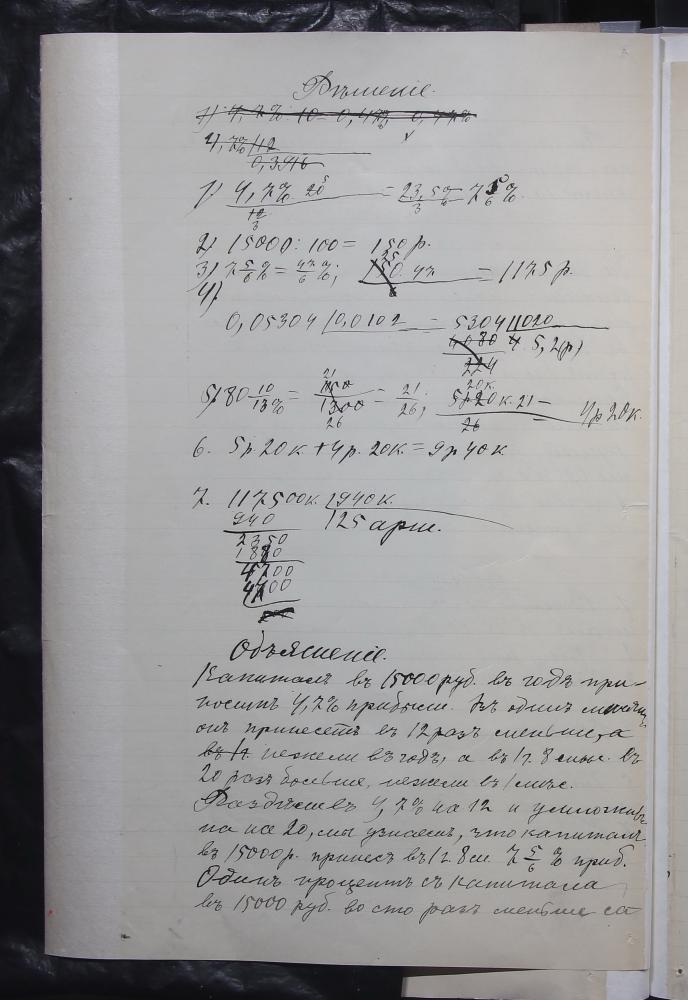 Рѣшеніе.
4,7% | 12
0,3916
1) 4,7% 20 5 = 23,5% = 7 5/6 %
12 3
3 6
2) 15000 : 100 = 150 р.
3) 7 5/6 % = 47/6 %; 150. 47 = 1175 р.
25
6
4)
0,05304 | 0,0102 = 5304 | 1020
4080 5,2(р)
224
5) 80 10/13 % = 1050/1300 = 21/26; 5р.20к. 21 = 4р 20к.
21 20к.
26 26
6. 5р. 20к. + 4р. 20к. = 9р 40к
7. 117500к. | 940к.
940 125 арш.
2350
1880
4700
4700
Объясненіе.
Капиталъ въ 15000 руб. въ годъ при-
носитъ 4,7% прибыли. Въ одинъ мѣсяцъ
онъ принесетъ въ 12 разъ меньше, а
въ 1г. нежели въ годъ, а въ 1г. 8 мѣс. въ
20 разъ больше, нежели въ 1 мѣс.
Раздѣливъ 4,7% на 12 и умноживъ
на 20, мы узнаемъ, что капиталъ
въ 15000р. принесъ въ 1г. 8 м 7 5/6 % приб.
Одинъ процентъ съ капитала
въ 15000 руб. во сто разъ меньше са